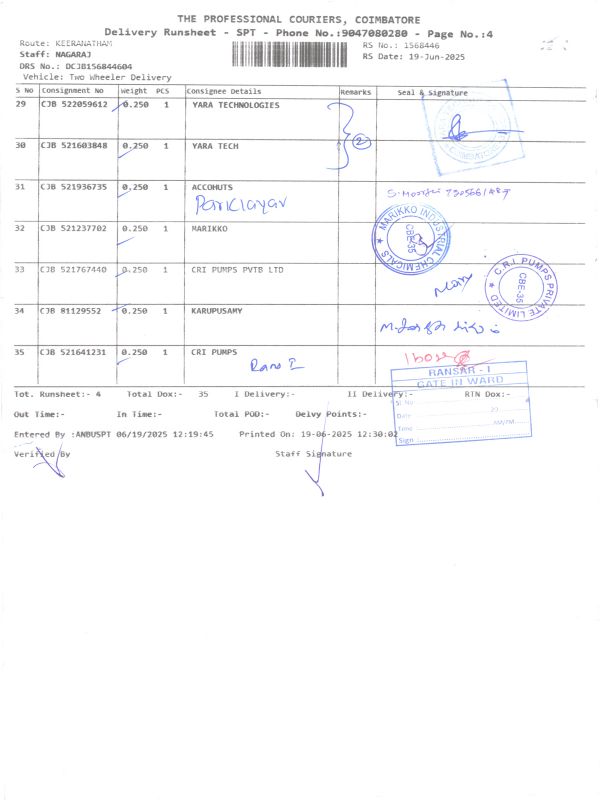 THE PROFESSIONAL COURIERS, COIMBATORE
Delivery Runsheet - SPT - Phone No.:9047080280 - Page No.:4
Route: KEERANATHAM
RS No.: 1568446
Staff: NAGARAJ
RS Date: 19-Jun-2025
DRS No.: DCJB156844604
Vehicle: Two Wheeler Delivery
S No Consignment No Weight PCS Consignee Details Remarks Seal & Signature
29 CJB 522059612 0.250 1 YARA TECHNOLOGIES
2
30 CJB 521603848 0.250 1 YARA TECH
31 CJB 521936735 0.250 1 ACCOHUTS
32 CJB 521237702 0.250 1 MARIKKO
MARIKKO INDUSTRIAL CHEMICALS
CBE-35
33 CJB 521767440 0.250 1 CRI PUMPS PVTB LTD
C.R.I. PUMPS PRIVATE LIMITED
CBE-35
34 CJB 81129552 0.250 1 KARUPUSAMY
35 CJB 521641231 0.250 1 CRI PUMPS
RANSAR - I
GATE IN WARD
Sl. No
Date 20
Time AM/PM
Sign :
Tot. Runsheet:- 4 Total Dox:- 35 I Delivery:- II Delivery:- RTN Dox:-
Out Time:- In Time:- Total POD:- Delvy Points:-
Entered By :ANBUSPT 06/19/2025 12:19:45 Printed On: 19-06-2025 12:30:02
Verified By Staff Signature